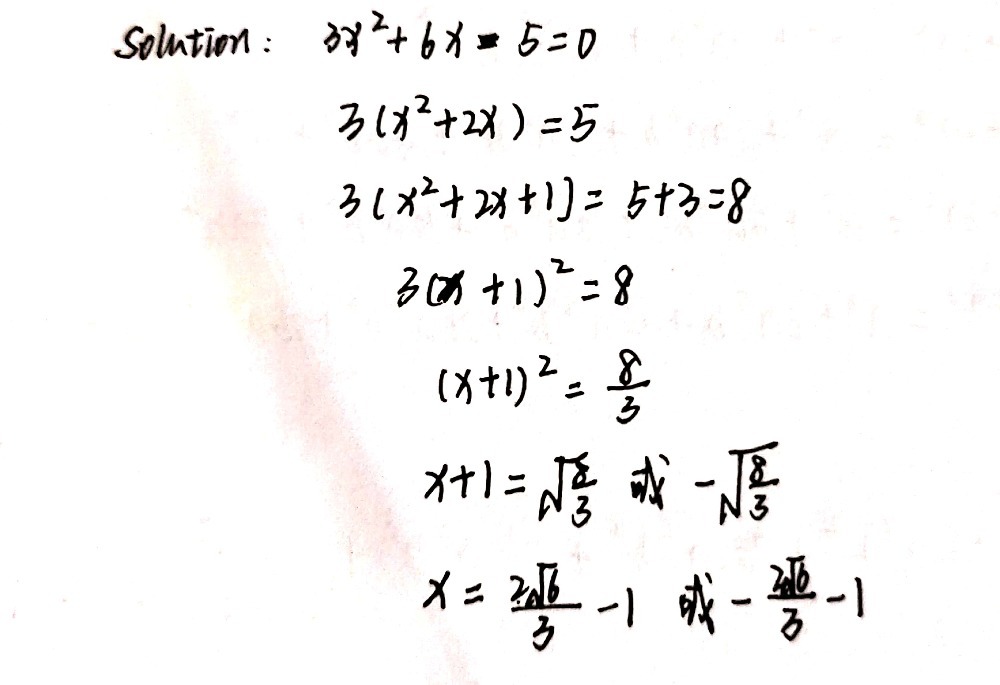 Solution: 3x²+6x-5=0
3(x²+2x)=5
3(x²+2x+1]=5+3=8
3(x+1)²=8
(x+1)²=8/3
x+1=√(8/3) 或 -√(8/3)
x=2√6/3-1 或 -2√6/3-1